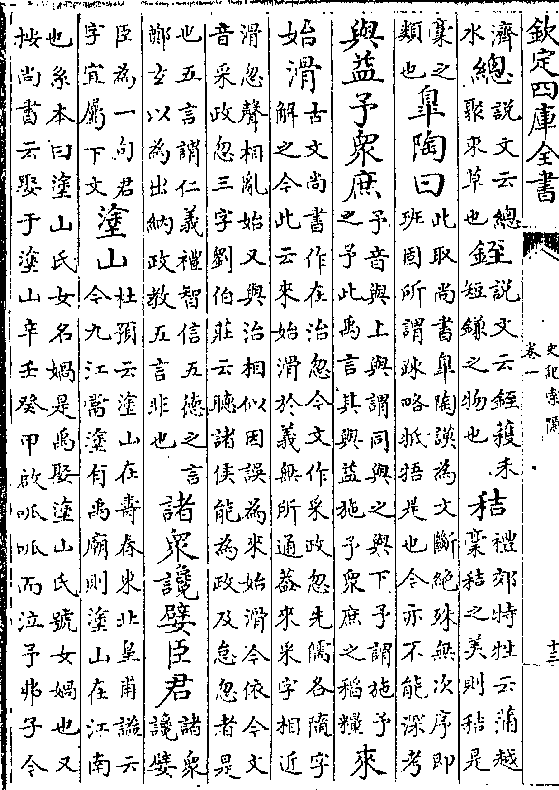 欽定四庫全書
史記索隱
卷一
十三
濟水總說文云總聚束草也銍說文云銍穫禾短鎌之物也秸禮郊特牲云蒲越藁秸之美則秸是
藁之類也臯陶曰此取尚書臯陶謨為文斷絶殊無次序即班固所謂疎略抵捂是也今亦不能深考
與益予衆庶予音與上與謂同與之與下予謂施予之予此禹言其與益施予衆庶之稻糧來
始滑古文尚書作在治忽今文作采政忽先儒各隨字解之今此云來始滑於義無所通蓋來采字相近
滑忽聲相亂始又與治相似因誤為來始滑今依今文音采政忽三字劉伯莊云聽諸侯能為政及怠忽者是
也五言謂仁義禮智信五德之言鄭玄以為出納政教五言非也諸衆讒嬖臣君諸衆讒嬖
臣為一句君字宜屬下文塗山杜預云塗山在壽春東北皇甫謐云今九江當塗有禹廟則塗山在江南
也系本曰塗山氏女名媧是禹娶塗山氏號女媧也又按尚書云娶于塗山辛壬癸甲啟呱呱而泣予弗子今